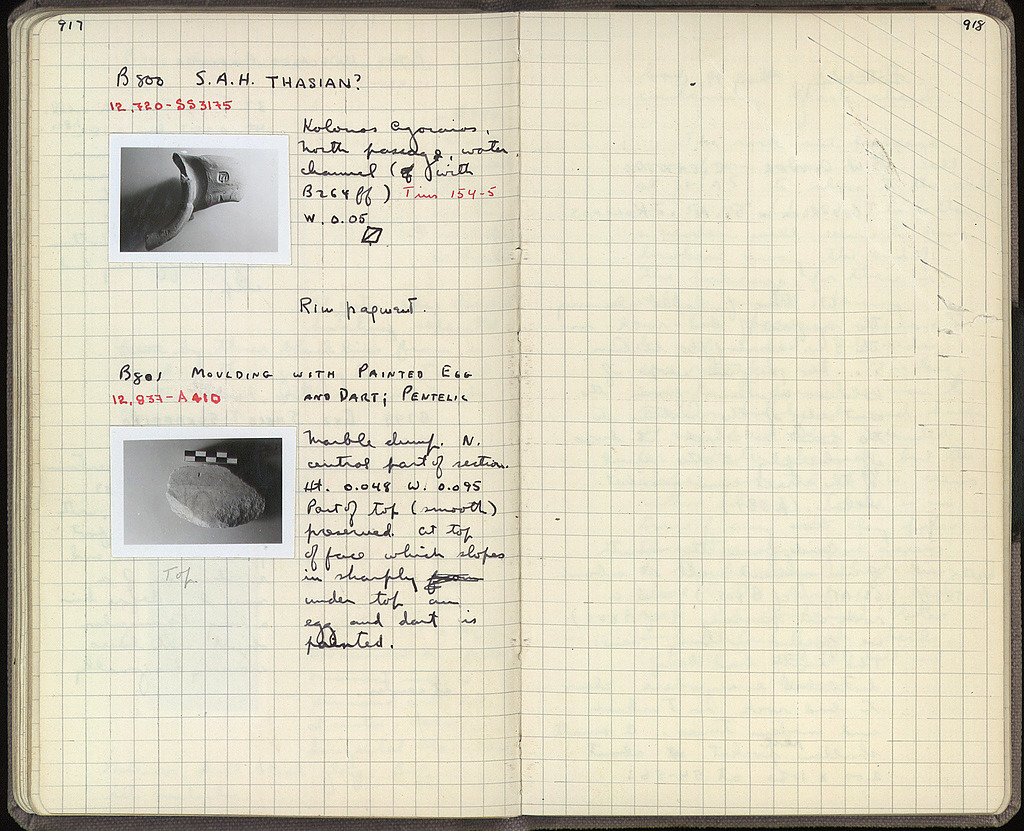 917
B800 S.A.H. THASIAN?
12,720-SS3175
Kolonos Agoraios,
North passage, water
channel (with
B264ff) Tins 154-5
W. 0.05
Rim fragment.
B801 MOULDING WITH PAINTED EGG
AND DART; PENTELIC
12,837-A410
Marble dump. N.
central part of section.
Ht. 0.048 W. 0.095
Part of top (smooth)
preserved. At top
of face which slopes
in sharply from
under top an
egg and dart is
painted.
Top.
918